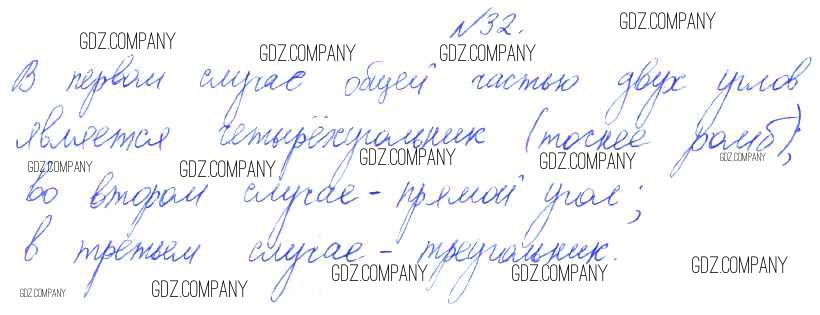 №32.
В первом случае общей частью двух углов
является четырёхугольник (точнее ромб);
во втором случае - прямой угол;
в третьем случае - треугольник.
GDZ.COMPANY
GDZ.COMPANY
GDZ.COMPANY
GDZ.COMPANY
GDZ.COMPANY
GDZ.COMPANY
GDZ.COMPANY
GDZ.COMPANY
GDZ.COMPANY
GDZ.COMPANY
GDZ.COMPANY
GDZ.COMPANY
GDZ.COMPANY
GDZ.COMPANY